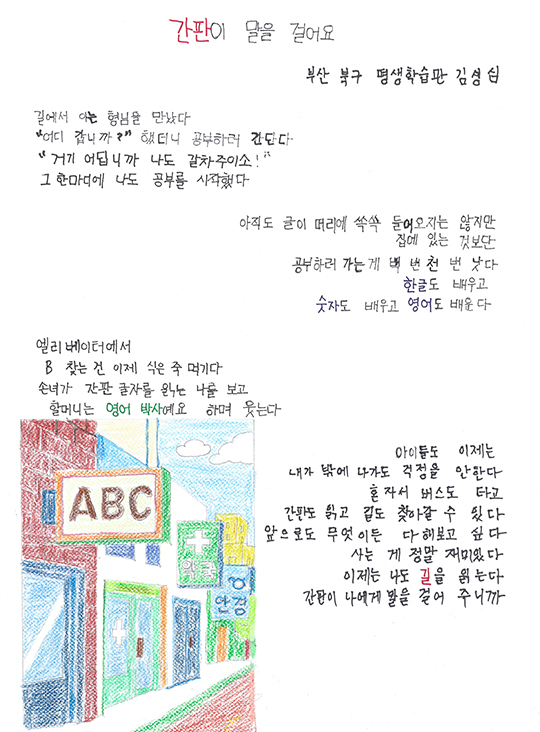 간판이 말을 걸어요
부산 북구 평생학습관 김성심
길에서 아는 형님을 만났다
"어디 갑니까?" 했더니 공부하러 간단다
"거기 어딥니까 나도 갈차주이소!"
그 한마디에 나도 공부를 시작했다
아직도 글이 머리에 쏙쏙 들어오지는 않지만
집에 있는 것보단
공부하러 가는게 백 번 천 번 낫다
한글도 배우고
숫자도 배우고 영어도 배운다
엘리베이터에서
B 찾는 건 이제 식은 죽 먹기다
손녀가 간판 글자를 읽는 나를 보고
할머니는 영어 박사예요 하며 웃는다
아이들도 이제는
내가 밖에 나가도 걱정을 안한다
혼자서 버스도 타고
간판도 읽고 길도 찾아갈 수 있다
앞으로도 무엇이든 다 해보고 싶다
사는 게 정말 재미있다
이제는 나도 길을 읽는다
간판이 나에게 말을 걸어 주니까
ABC
약국
안경